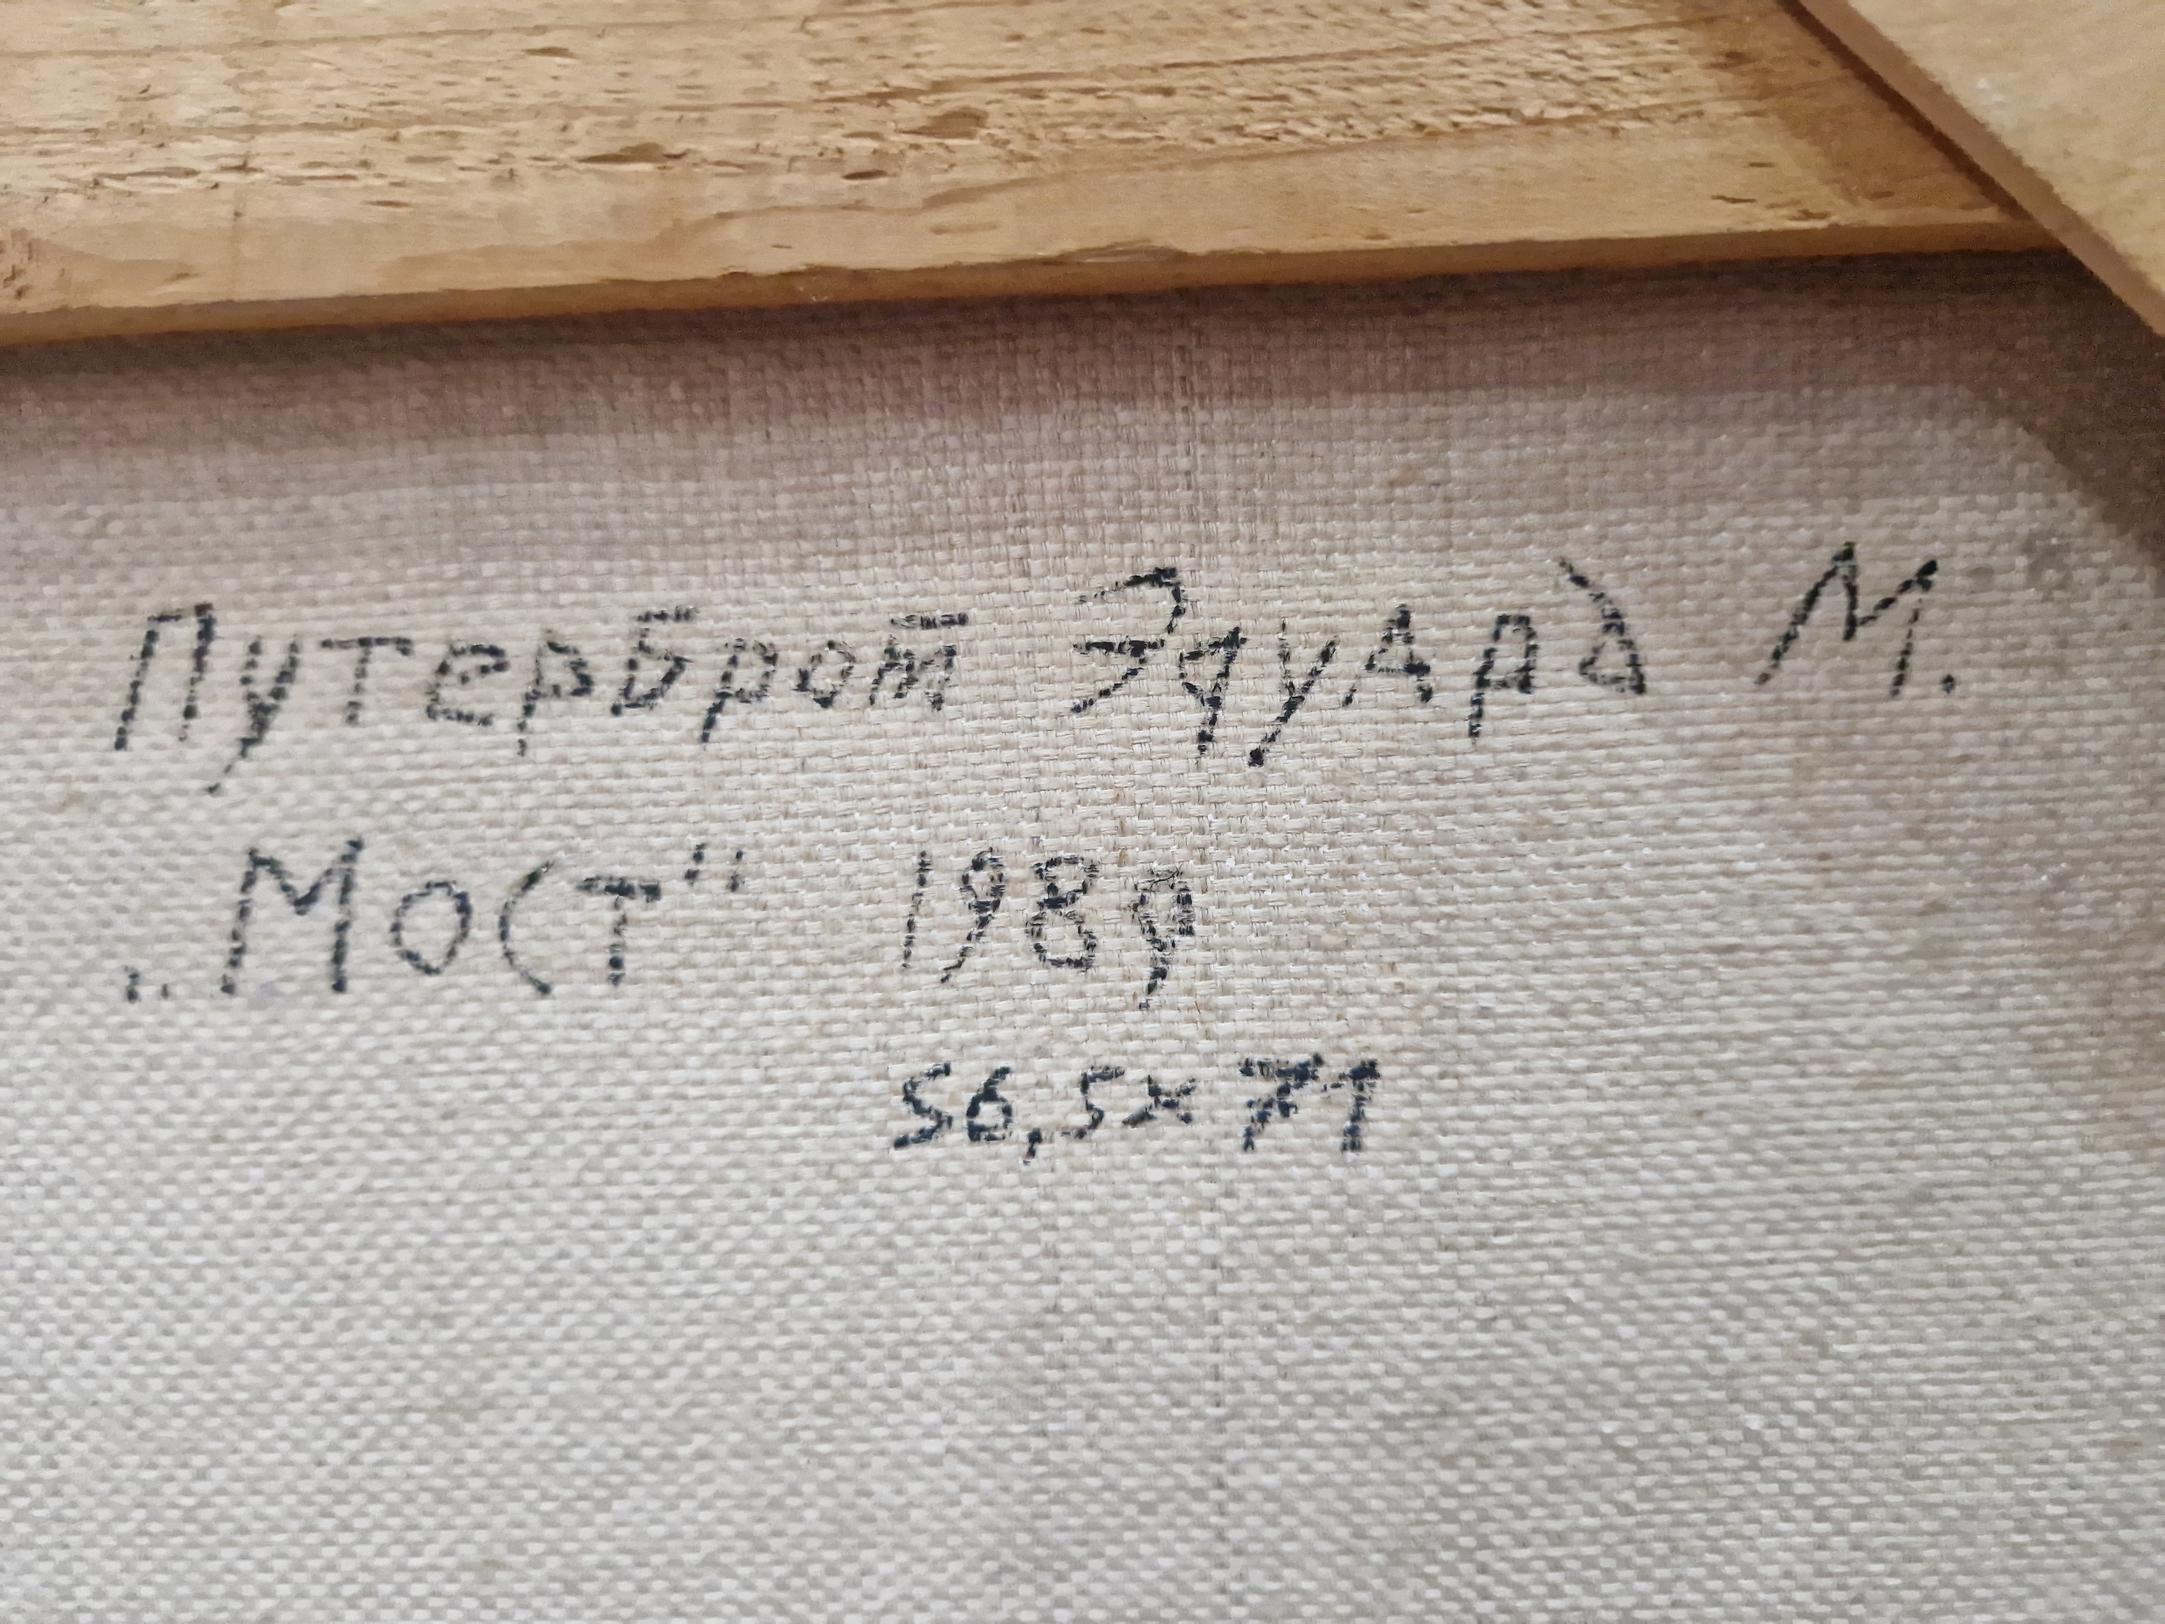 Путерброт Эдуард М.
„Мост" 1989
56,5×71